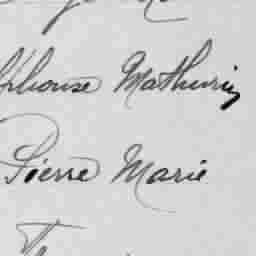 Alphonse Mathurin
Pierre Marie